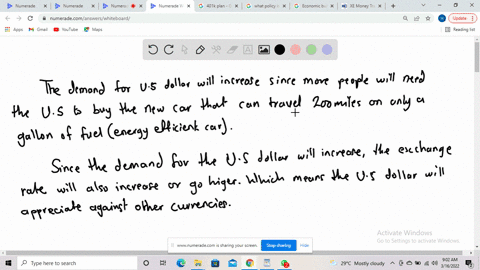 Numerade
Numerade
Numerade
Numerade W
401k plan -
what policy
Economic is
XE Money Tr
numerade.com/answers/whiteboard/
Update
Apps
Gmail
YouTube
Maps
Reading list
The demand for U.S dollar will increase since more people will need
the U.S to buy the new car that can travel 200miles on only a
gallon of fuel (energy efficient car).
Since the demand for the U.S dollar will increase, the exchange
rate will also increase or go higer. Which means the U.S dollar will
appreciate against other currencies.
Activate Windows
Go to Settings to activate Windows.
www.numerade.com is sharing your screen.
Stop sharing
Hide
Type here to search
29°C Mostly cloudy
9:02 AM
3/16/2022